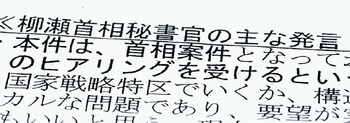 ≪柳瀬首相秘書官の主な発言
・本件は、首相案件となってお
のヒアリングを受けるという
国家戦略特区でいくか、構造
カルな問題であり、要望が実
もいいと思う。現